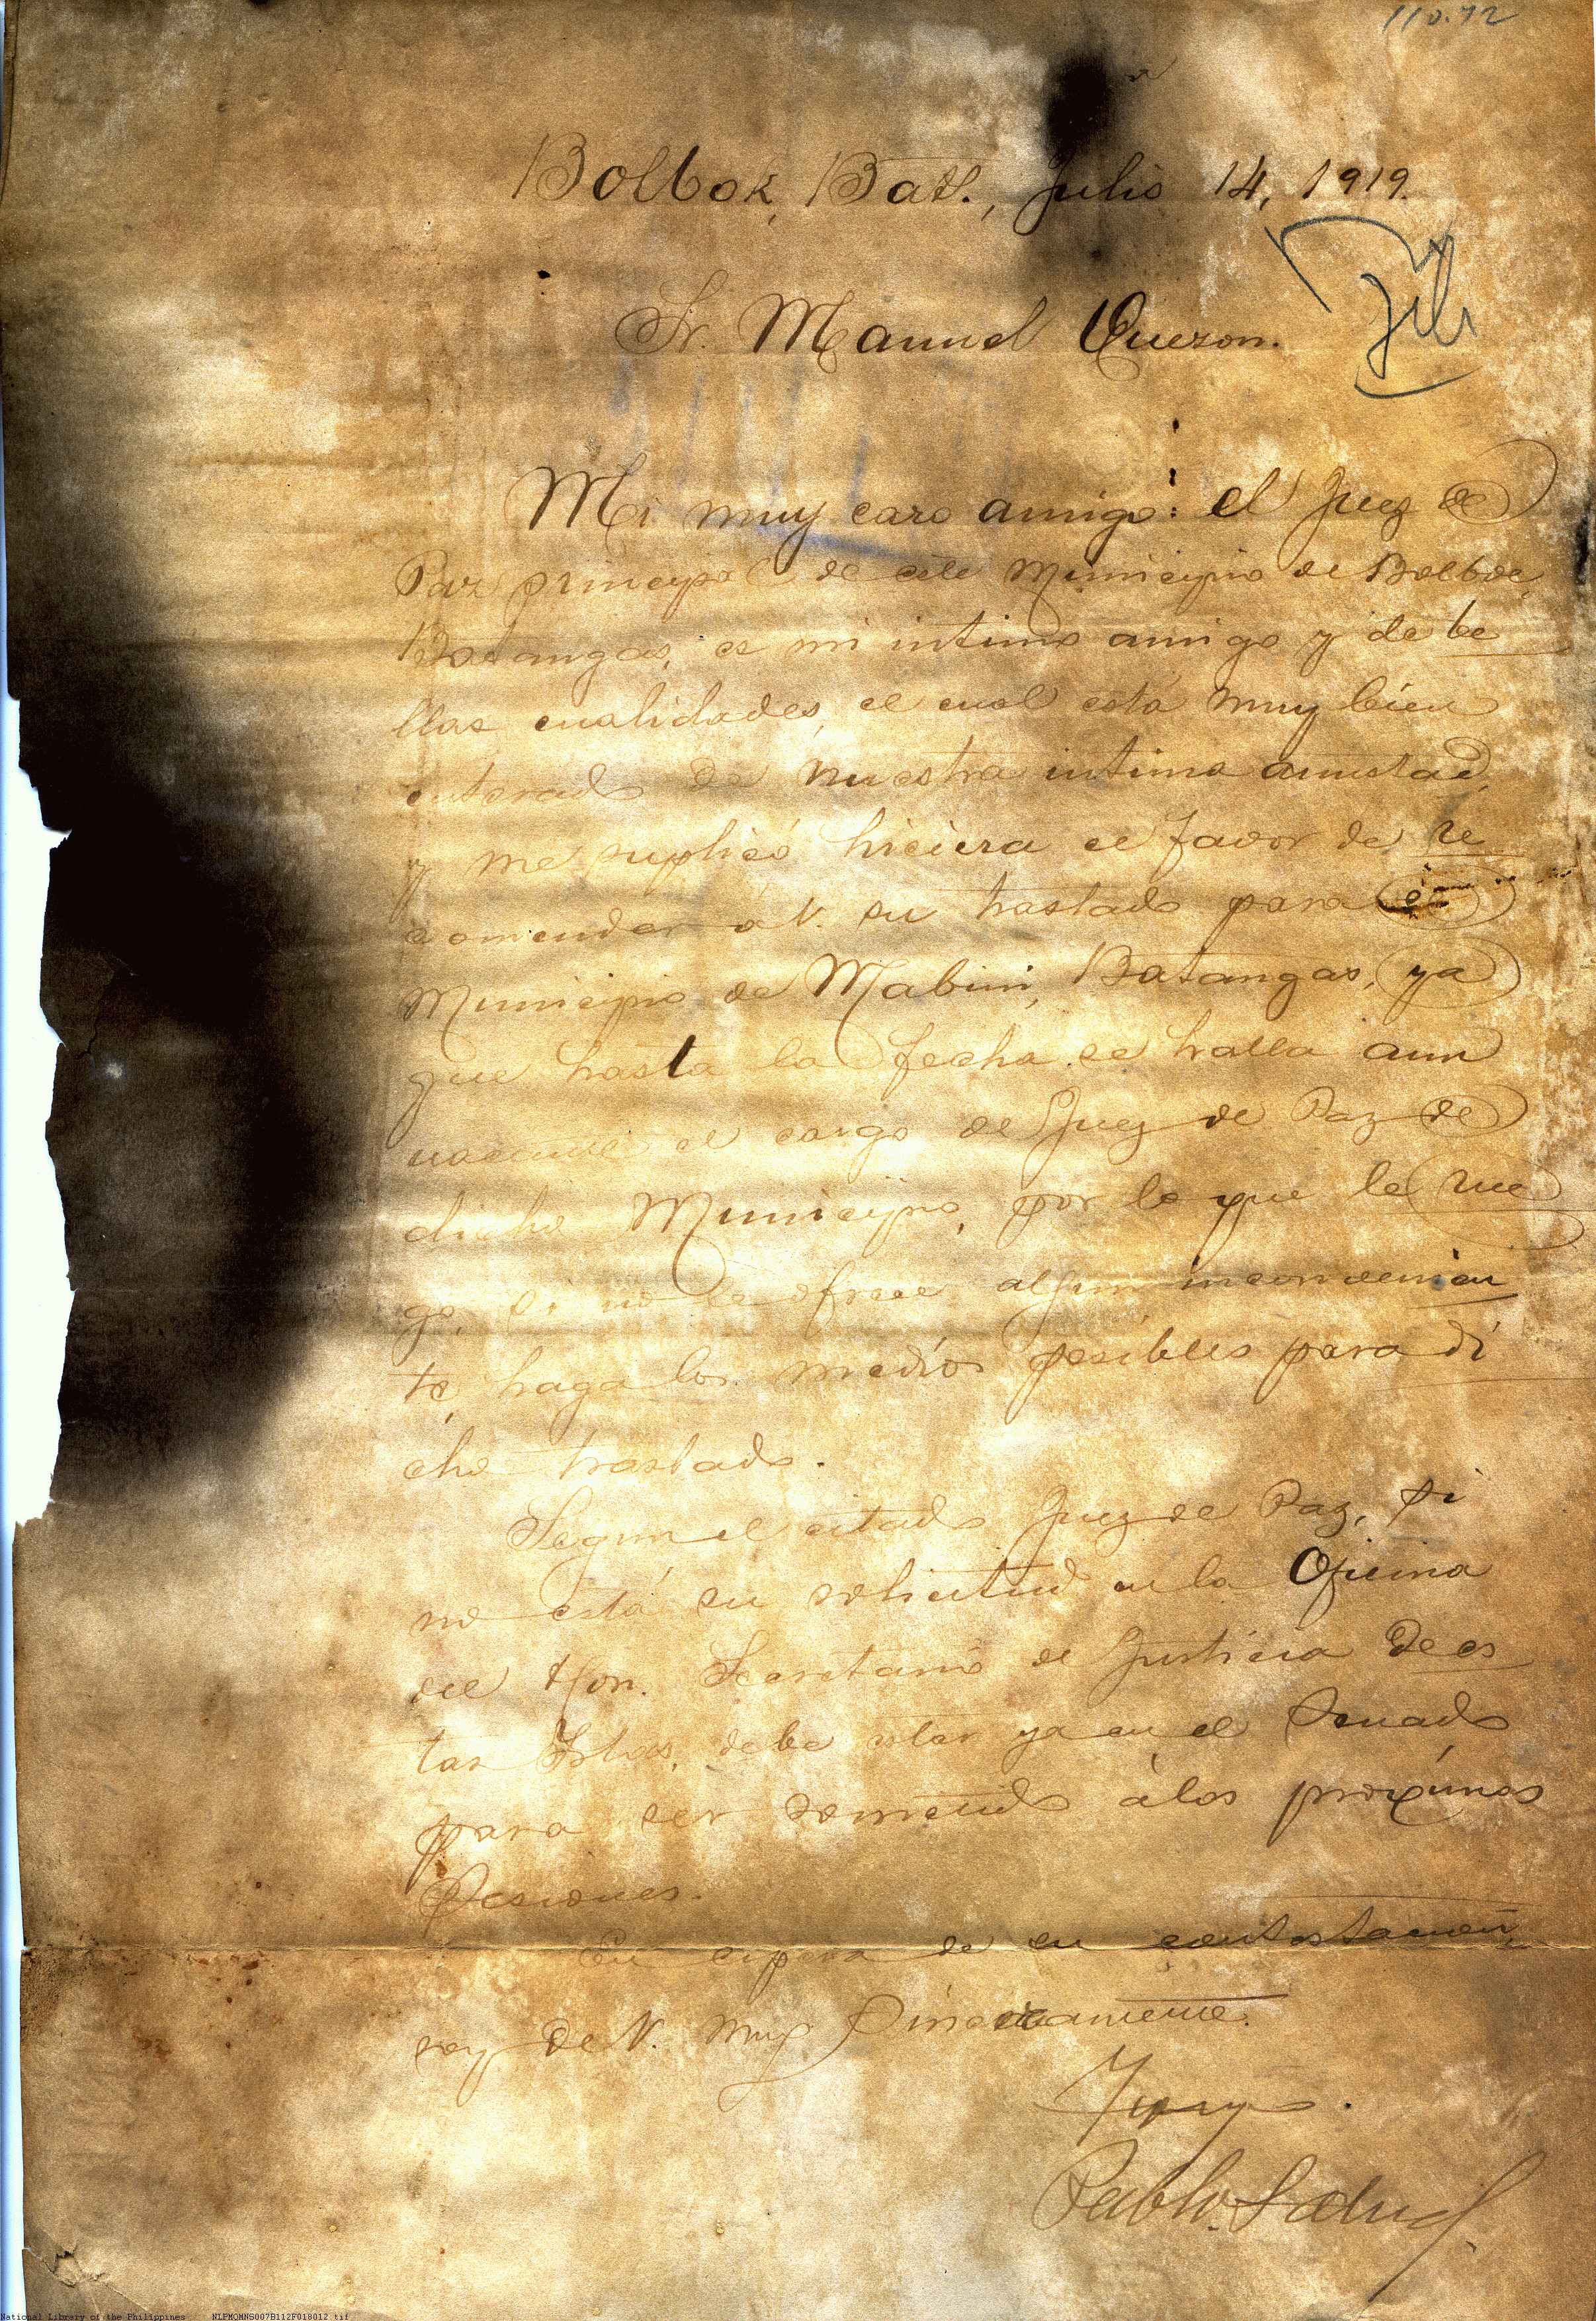 110.72
Bolbok, Bat., Julio 14, 1919.
File
Sr. Manuel Quezon.
Mi muy caro amigo: el Juez de
Paz principal de este Municipio de Bolbok,
Batangas, es mi intimo amigo y de be
llas cualidades, el cual está muy bien
enterado de nuestra intima amistad,
y me suplicó hiciera el favor de re
comendar á V. su traslado para el
Municipio de Mabini, Batangas, ya
que hasta la fecha se halla aun
vacante el cargo de Juez de Paz de
dicho Municipio, por lo que le rue
go, si no le ofrece algun inconvenien
te, haga los medios posibles para di
cho traslado.
Segun el citado Juez de Paz, si
no está su solicitud en la Oficina
del Hon. Secretario de Justicia de es
tas Islas, debe estar ya en el Senado
para ser sometido á los proximos
Sesiones.
En espera de su contestacion,
soy de V. muy Sinceramente.
Suyo.
Pablo Salud
National Library of the Philippines NLPMQMNS007B112F018012.tif